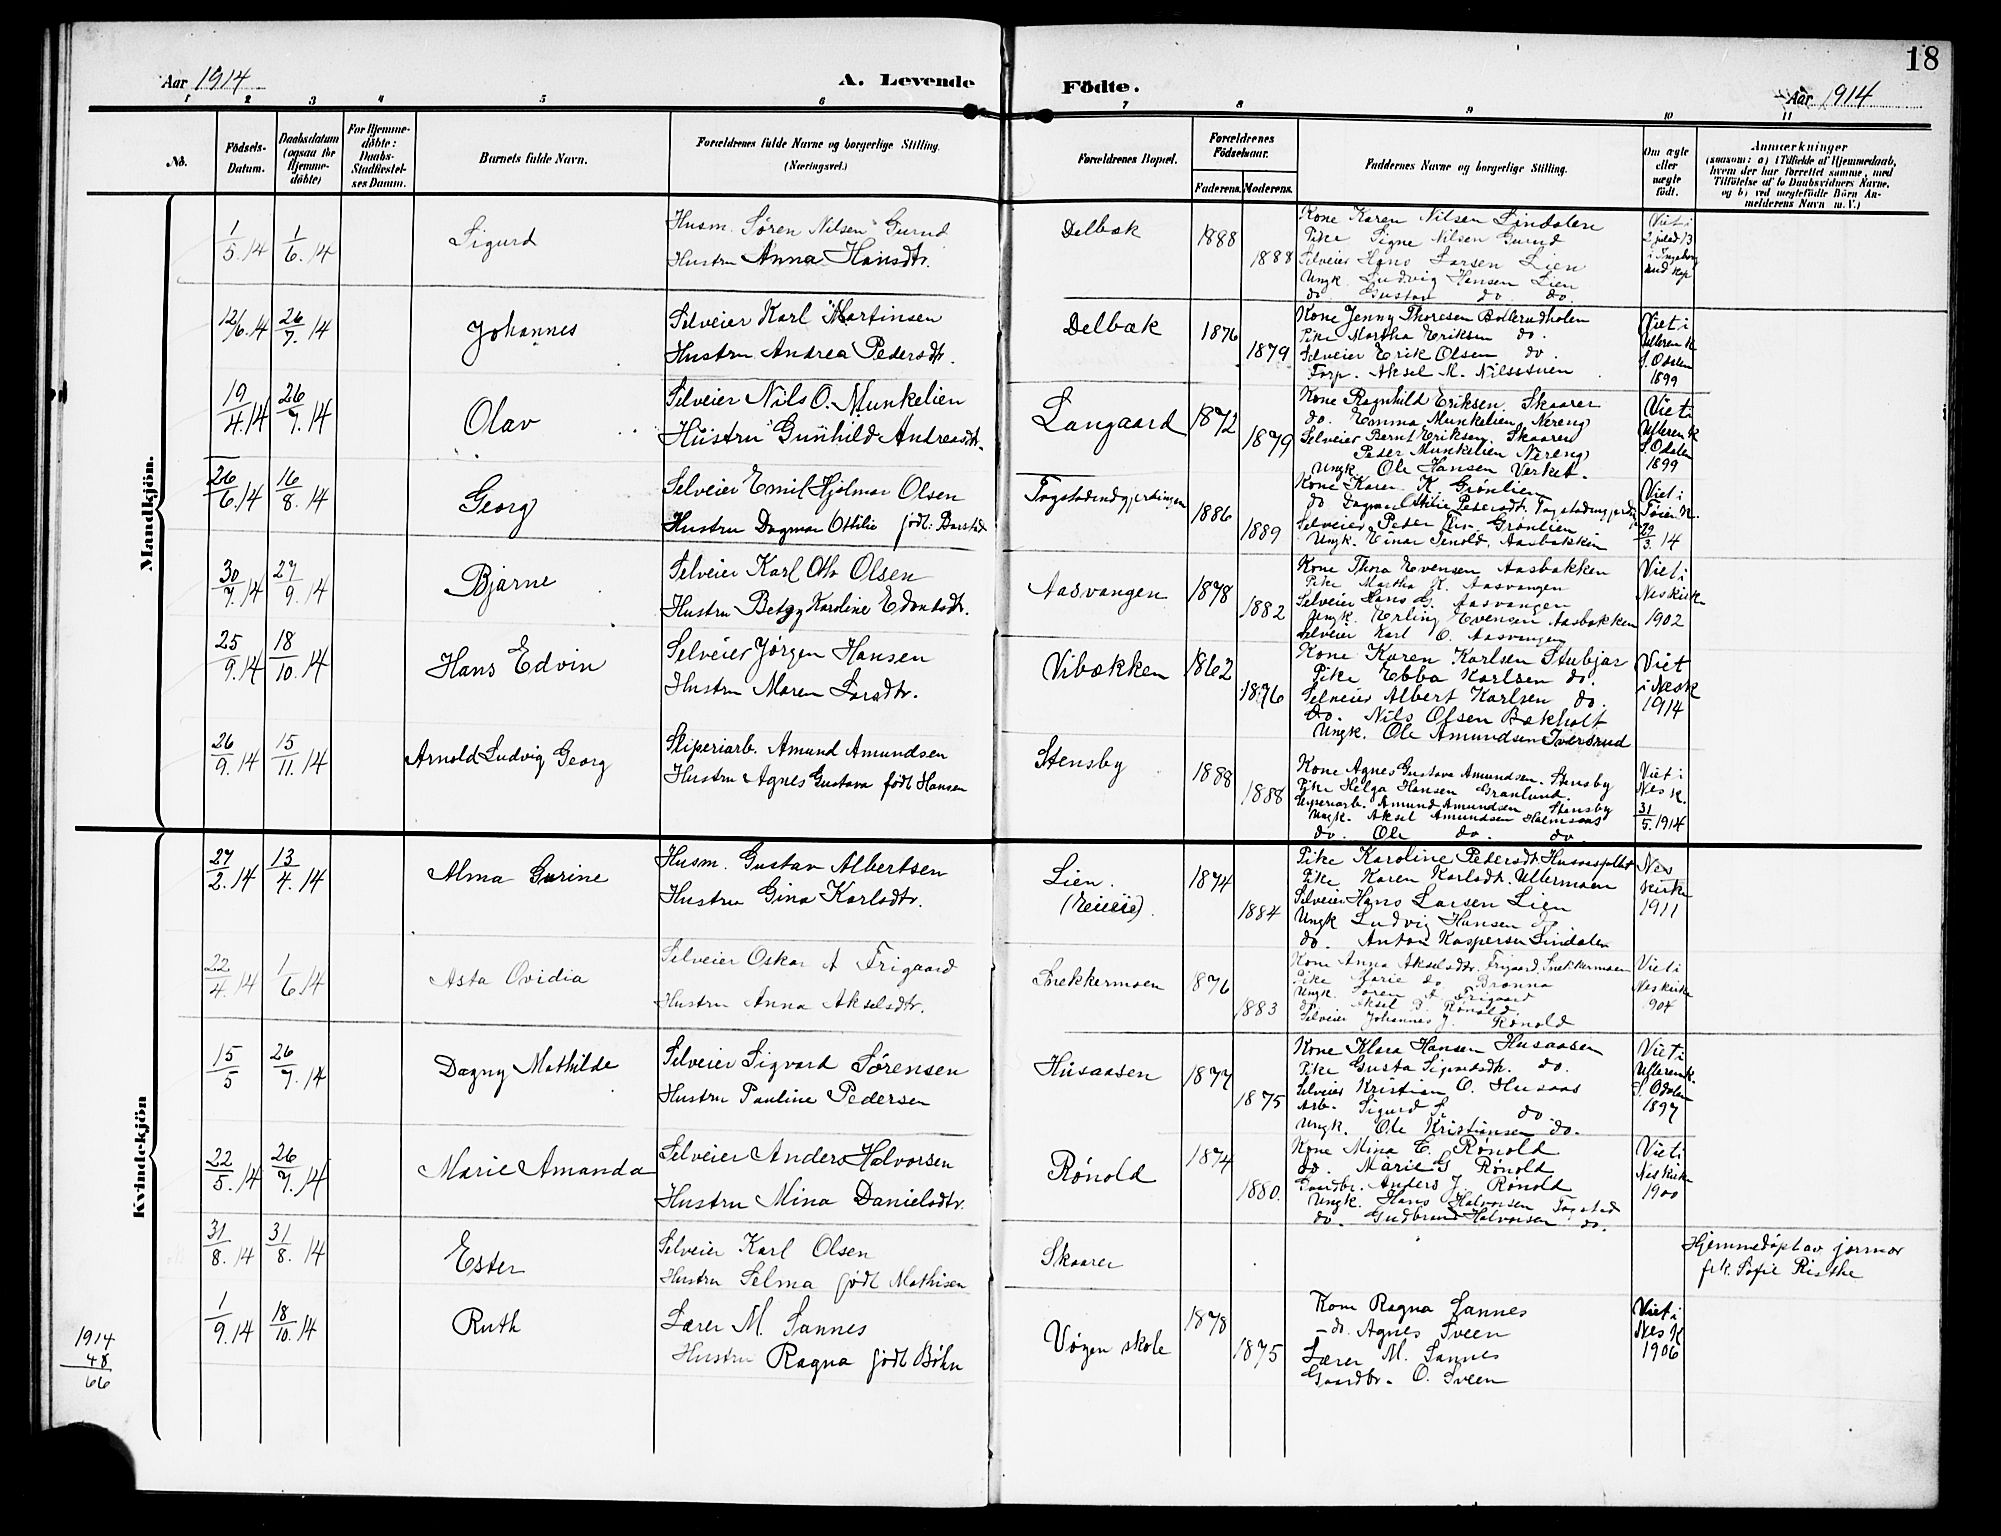 18
Aar 1914
A. Levende
Födte.
Aar 1914
1 2 3 4 5 6 7 8 9 10 11
No.
Födsels-
Datum.
Daabsdatum
(ogsaa for
Hjemme-
döbte)
For Hjemme-
döbte:
Daabs-
Stadfæstel-
ses Datum.
Barnets fulde Navn.
Forældrenes fulde Navne og borgerlige Stilling.
(Næringsvei.)
Forældrenes Bopæl.
Forældrenes
Födselsaar.
Faderens. Moderens.
Faddernes Navne og borgerlige Stilling.
Om ægte
eller
uægte
födt.
Anmærkninger
(saasom: a) i Tilfælde af Hjemmedaab,
hvem der har forrettet samme, med
Tilföielse af to Daabsvidners Navne,
og b) ved uægtefödte Börn An-
melderens Navn m. V.)
Mandkjön.
1/5.14 1/6.14
Sigurd
Husm. Søren Nilsen Gurud
Hustru Anna Hansdtr.
Delbæk
1888
1888
Kone Karen Nilsen Lindalen
Pike Signe Nilsen Gurud
Selveier Hans Larsen Lien
Ungk. Ludvig Hansen Lien
do. Gustav do. do.
Viet i
12/6.14 26/7.14
Johannes
Selveier Karl Martinsen
Hustru Andrea Pedersdtr.
Delbæk
1876
1879
Kone Jenny Thoresen Bollerudholen
Pike Martha Eriksen do.
Selveier Erik Olsen do.
Torp. Aksel M. Nilsstuen
Viet i
Ulleren K
S. Odalen
1899
19/4.14 26/7.14
Olav
Selveier Nils O. Munkelien
Hustru Gunhild Andreasdtr.
Langaard
1872
1879
Kone Ragnhild Eriksen Skaarer
do. Emma Munkelien Nereng
Selveier Bernt Eriksen. Skaarer
Peder Munkelien Nereng
Ungk. Ole Hansen Verket.
Viet i
Ulleren K
S. Odalen
1899
26/6.14 16/8.14
Georg
Selveier Emil Hjalmar Olsen
Hustru Dagmar Ottilie født: Barstad
1886
1889
Kone Karen K Grønlien
do Dagmar Ottilie Pedersdt.
Selveier Peder Grønlien
Ungk. Einar Aasbakken
Viet i
29/3.14
30/7.14 27/9.14
Bjarne
Selveier Karl Otto Olsen
Hustru Betzy Karoline Edvartsdtr.
Aasvangen
1878
1882
Kone Thora Evensen Aasbakken
Pike Martha K. Aasvangen
Selveier Hans G. Aasvangen
Ungk. Erling Evensen Aasbakken
Selveier Karl O. Aasvangen
Viet i
Neskirke
1902
25/9.14 18/10.14
Hans Edvin
Selveier Jørgen Hansen
Hustru Maren Larsdtr.
Vibækken
1862
1876
Kone Karen Karlsen Stubjar
Pike Ebba Karlsen do.
Selveier Albert Karlsen do.
do. Nils Olsen Bækholt
Ungk. Ole Amundsen Iversrud
Viet
i Nesk
1914
26/9.14 15/11.14
Arnold Ludvig Georg
Sliperiarb. Amund Amundsen
Hustru Agnes Gustava født Hansen
Stensby
1888
1888
Kone Agnes Gustava Amundsen. Stensby
Pike Helga Hansen Granlund.
Sliperiarb. Amund Amundsen Stensby
Ungk. Aksel Amundsen Holmsaas
do. Ole do. do
Viet i
Nes K.
31/5.1914
Kvindekjön
27/2.14 13/4.14
Alma Gurine
Husm. Gustav Albertsen
Hustru Gina Karlsdtr.
Lien.
1874
1884
Pike Karoline Pedersdt. Husaasplbt
Pike Karen Karlsdtr. Ullermoen
Selveier Hans Larsen Lien
Ungk Ludvig Hansen do.
do. Anton Kaspersen Lindalen
Nes
kirke
1911
22/4.14 1/6.14
Asta Ovidia
Selveier Oskar A Frigaard
Hustru Anna Akselsdtr.
Snekkermoen
1876
1883
Kone Anna Akselsdtr. Frigaard, Snekkermoen
Pike Marie do Brønna
Ungk. Søren A Frigaard
do. Aksel Rønold.
Selveier Johannes J. Rønold
Viet i
Neskirke
904
15/5 26/7.14
Dagny Mathilde
Selveier Sigvard Sørensen
Hustru Pauline Pedersen
Husaasen
1877
1875
Kone Klara Hansen Husaasen
Pike Gusta Sigvardsdt. do.
Selveier Kristian O. Husaas
Arb. Sigurd S. do
Ungk. Ole Kristiansen do.
Viet i
Ulleren K.
S. Odalen
1897
22/5.14 26/7.14
Marie Amanda
Selveier Anders Halvorsen
Hustru Mina Danielsdtr.
Rønold
1874
1880.
Kone Mina E. Rønold
do. Marie G Rønold
Gaardbr. Anders J. Rønold
Ungk. Hans Halvorsen Fagstad
do. Gudbrand Halvorsen do.
Viet i
Neskirke
1900
31/8.14 31/8.14
Ester
Selveier Karl Olsen
Hustru Selma født Mathisen
Skaarer
Hjemmedøpt av jormor
frk. Sofie Risthe
1/9.14 18/10.14
Ruth
Lærer M. Sannes
Hustru Ragna født Bøhn
Vågen skole
1878
1875
Kone Ragna Sannes
- do. Agnes Sveen
Lærer M. Sannes
Gaardbr. O. Sveen
Viet i
Nes K
1906
1914
48
66